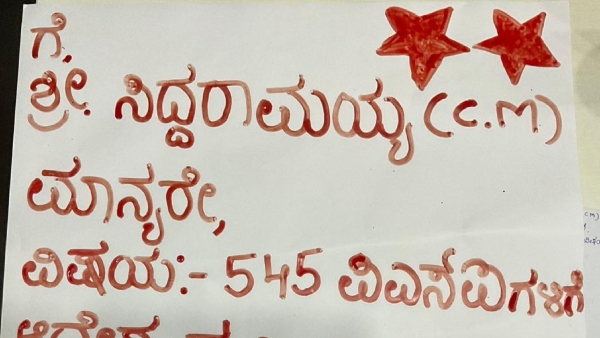 ಗೆ,
ಶ್ರೀ. ಸಿದ್ದರಾಮಯ್ಯ (C.M)
ಮಾನ್ಯರೇ,
ವಿಷಯ:- 545 ಪಿಎಸೆಐಗಳಿಗೆ